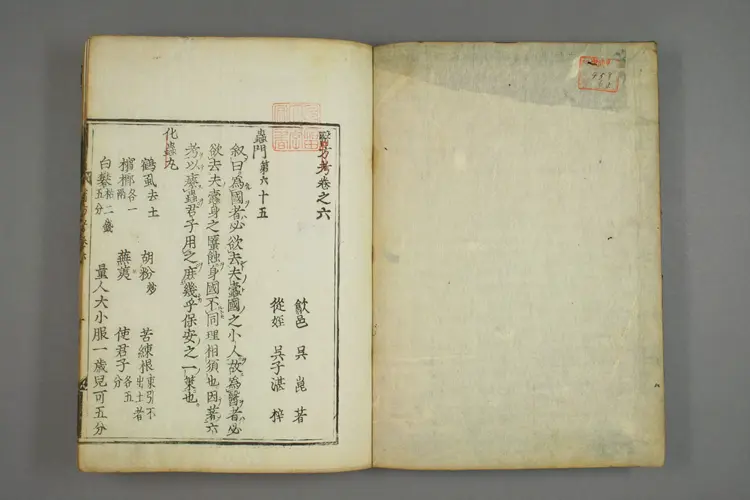 醫方考卷之六
歙邑 吳崑 著
從姪 吳子湛 梓
蟲門第六十五
叙曰為國者必欲去夫蠹國之小人故為醫者必
欲去夫蠹身之𧏾蝕身國不同理相須也因著六
考以療蟲君子用之庶幾乎保安之一策也
化蟲丸
鶴虱去土 胡粉炒 苦練根東引不出土者
檳榔各一兩 蕪荑 使君子各五分
白礬枯二錢五分 量人大小服一歲兒可五分